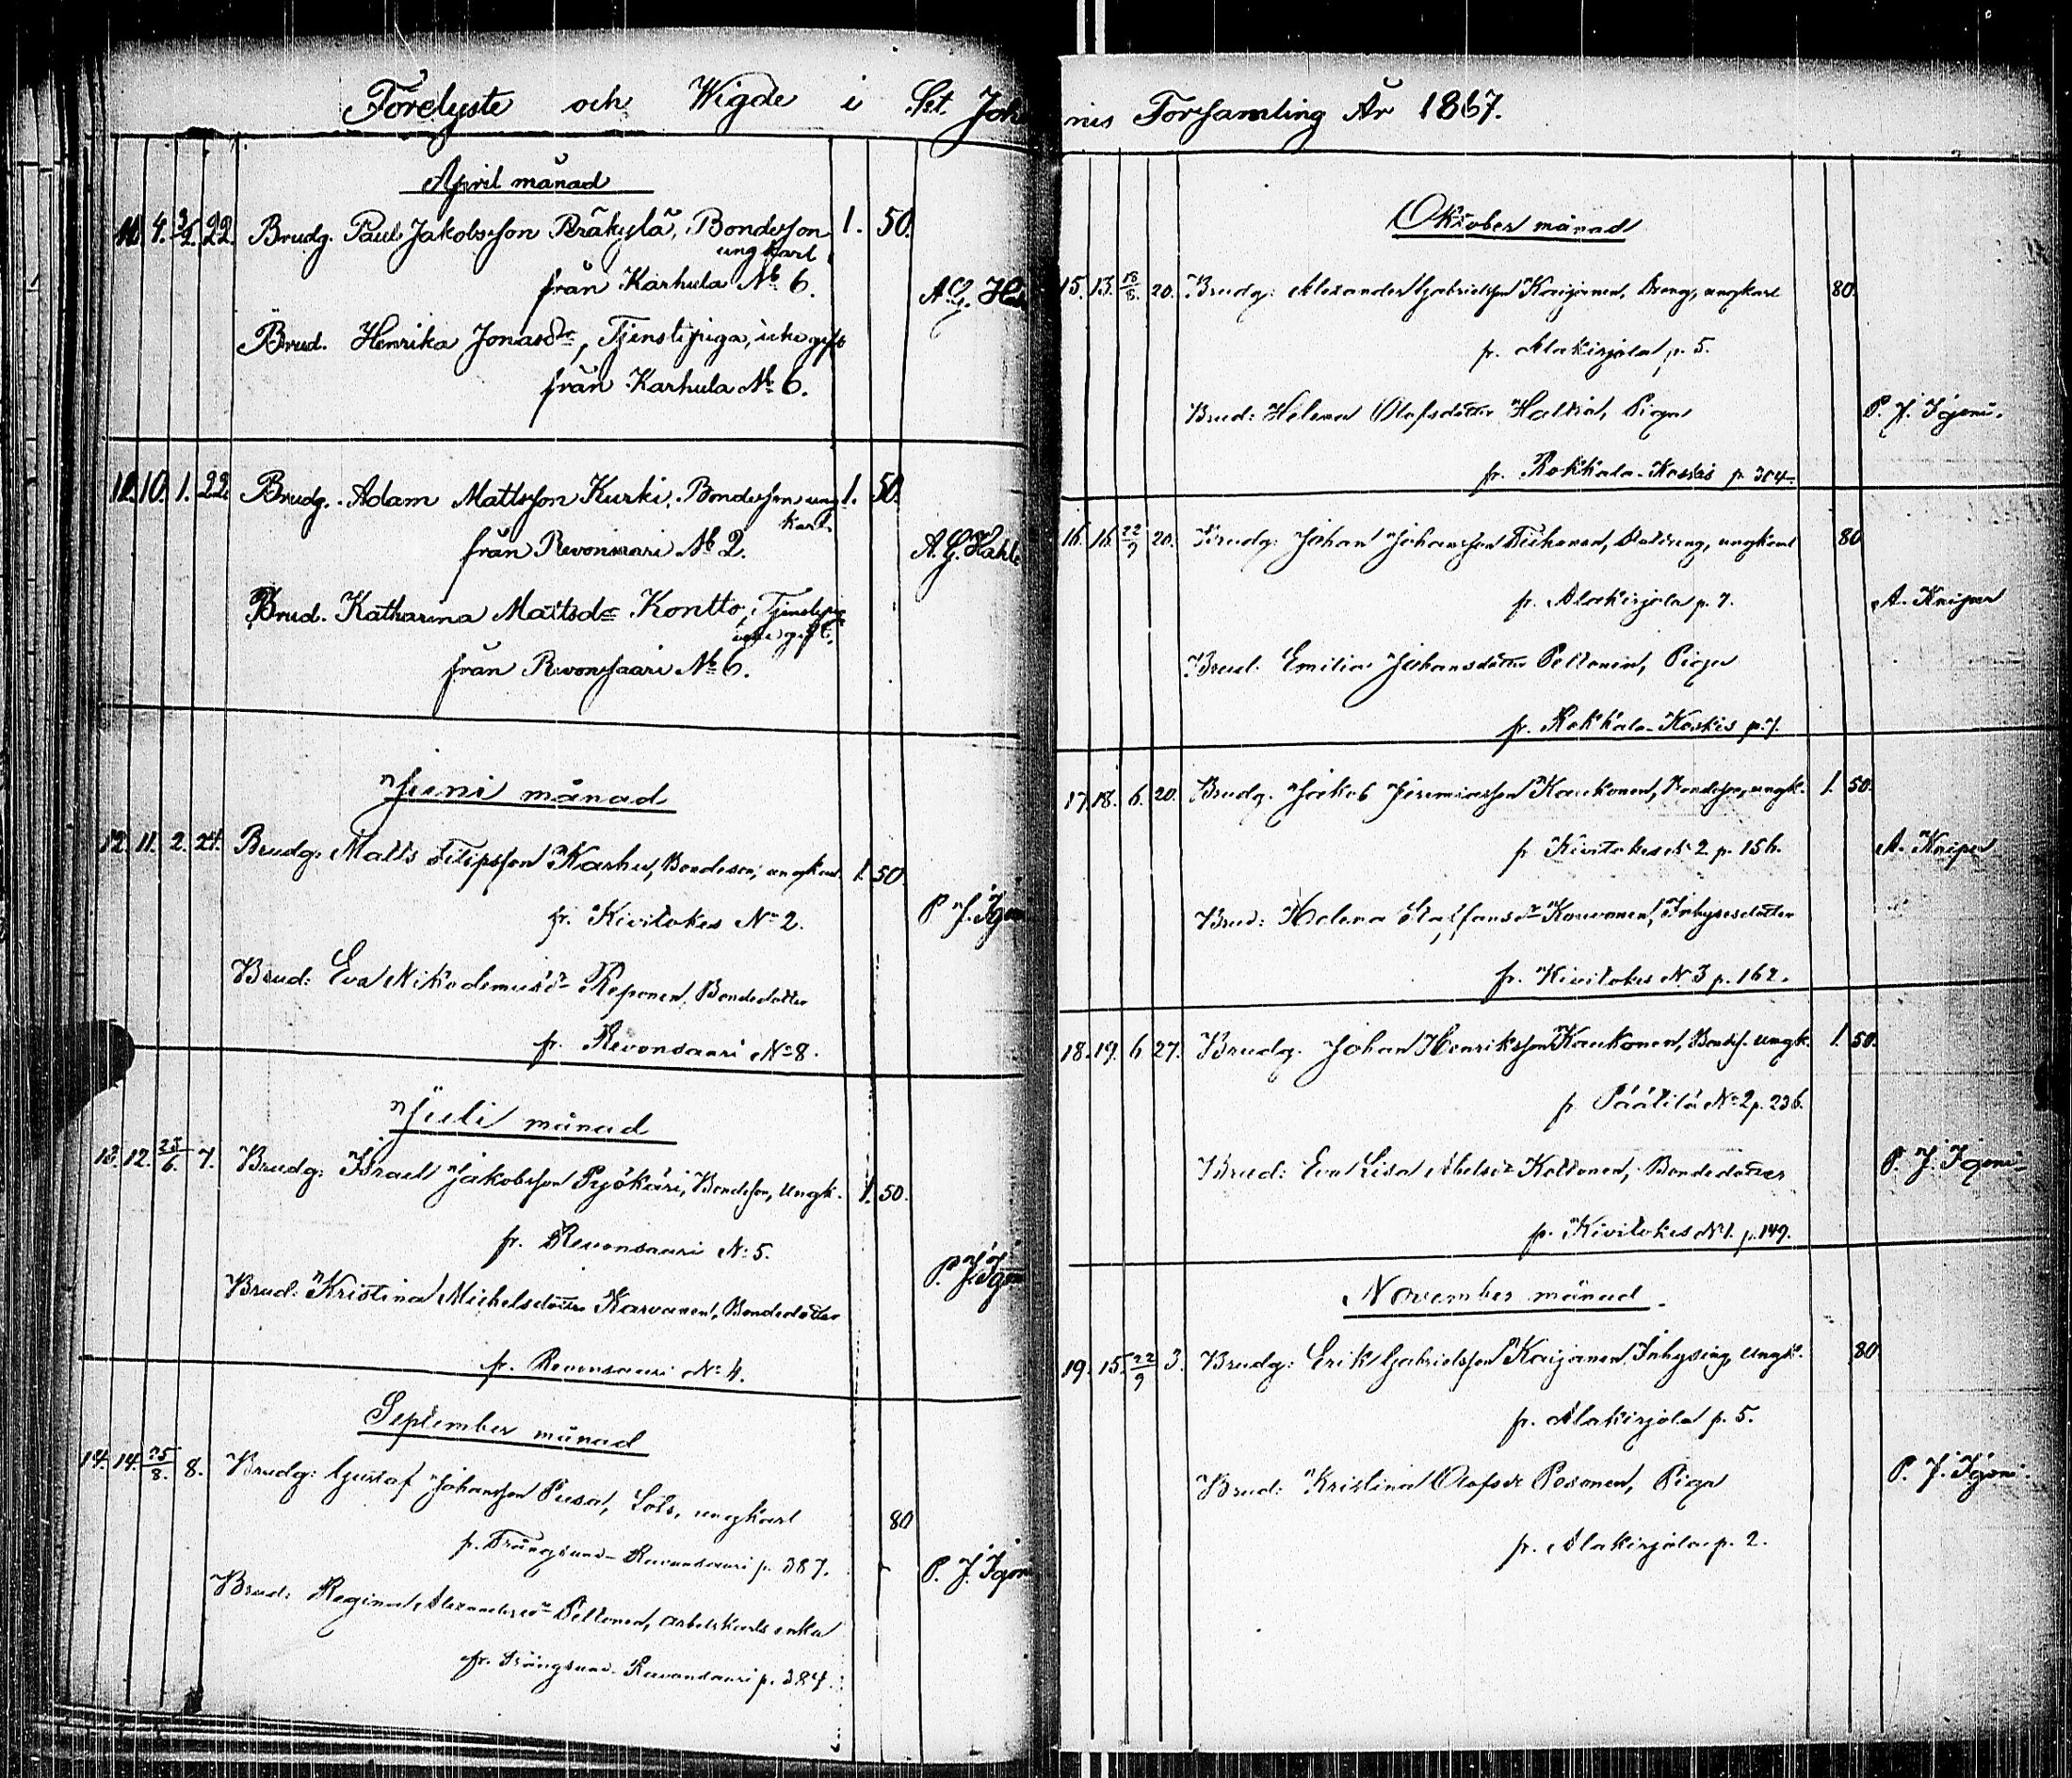 Förelyste och Wigde i Set. Joh
April månad
11. 4. 3/2. 22. Brudg. Paul Jakobsson Peräkylä, Bondeson 1. 50.
ungkarl
från Karhula No 6.
A.G. Ha
Brud. Henrika Jonasdr, Tjenstepiga, icke gift
från Karhula No 6.
12. 10. 1. 22. Brudg. Adam Mattsson Kurki, Bondeson ung 1. 50.
karl.
från Revonsaari No 2.
A. G. Kahl
Brud. Katharina Mattsdr Kontto, Tjenstepiga
icke gift.
från Revonsaari No 6.
Juni månad
12. 11. 2. 24. Brudg: Matts Filipsson Karhu, Bondeson, ungkarl. 1. 50.
fr. Kivitokes No 2.
P. J. Igon
Brud: Eva Nikodemusdr Reponen, Bondedotter
fr. Revonsaari No 8.
Juli månad
13. 12. 25/6. 7. Brudg: Israel Jakobsson Pyökäri, Bondeson, Ungk. 1. 50.
fr. Revonsaari No 5.
P. J. Igon
Brud: Kristina Michelsdotter Karvanen, Bondedotter
fr. Revonsaari No 4.
September månad
14. 14. 25/8. 8. Brudg: Gustaf Johansson Pusa, Lots, ungkarl 80
fr. Trångsund-Ravansaari p. 387.
P. J. Igon
Brud: Regina Alexandersdr Peltonen, arbetskarls enka
fr. Trångsund-Ravansaari p. 384.
nis Församling År 1867.
Oktober månad
15. 13. 18/8. 20. Brudg: Alexander Gabrielsson Kaijanen, Dreng, ungkarl 80.
fr. Alakirjola p. 5.
Brud: Helena Olofsdotter Hattia, Piga
P. J. Igoni.
fr. Rokkala-Koskis p. 304
16. 16. 22/9 20. Brudg: Johan Johansson Tiihonen, ungkarl 80
fr. Alakirjola p. 7.
A. Kniper
Brud: Emilia Johansdotter Peltonen, Piga
fr. Rokkala-Koskis p. 7.
17. 18. 6. 20. Brudg. Jakob Jeremiasson Kaukonen, Bondeson, ungk. 1. 50.
fr Kivitokes No 2 p. 156.
A. Kniper
Brud: Helena Staffansdr Kouvonen, Inhysesdotter
fr. Kivitokes No 3 p. 162.
18. 19. 6 27. Brudg. Johan Henriksson Kaukonen, Bondes. Ungk. 1. 50.
fr Päätilä No 2 p. 236.
Brud: Eva Lisa Abelsdr Koltonen, Bondedotter
P. J. Igoni
fr. Kivitokes No 1. p. 149.
November månad.
19. 15. 22/9 3. Brudg: Erik Gabrielsson Kaijanen, Inhysing, Ungk. 80
fr. Alakirjola p. 5.
Brud: Kristina Olofsdr Pesonen, Piga
P. J. Igoni.
fr. Alakirjola p. 2.